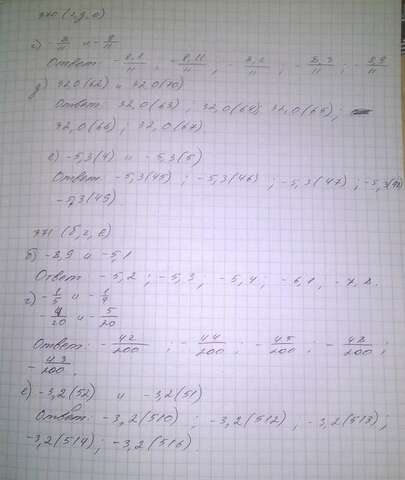 370 (г, д, е)
г) -8/11 и -9/11
Ответ -8,1/11 ; -8,11/11 , -8,2/11 ; -8,3/11 ; -8,9/11
д) 32,0(62) и 32,0(70)
Ответ 32,0(63) ; 32,0(64); 32,0(65) ;
32,0(66) ; 32,0(67)
е) -5,3(4) и -5,3(5)
Ответ -5,3(45) ; -5,3(46) ; -5,3(47) ; -5,3(48)
-5,3(49)
371 (б, г, е)
б) -8,9 и -5,1
Ответ -5,2 ; -5,3 , -5,4 ; -6,1 , -7,2.
г) -1/5 и -1/4
-4/20 и -5/20
Ответ: -42/200 ; -44/200 ; -45/200 ; -48/200 ;
-43/200 .
е) -3,2(52) и -3,2(51)
Ответ: -3,2(510) ; -3,2(512) , -3,2(513) ;
-3,2(514) ; -3,2(516) .